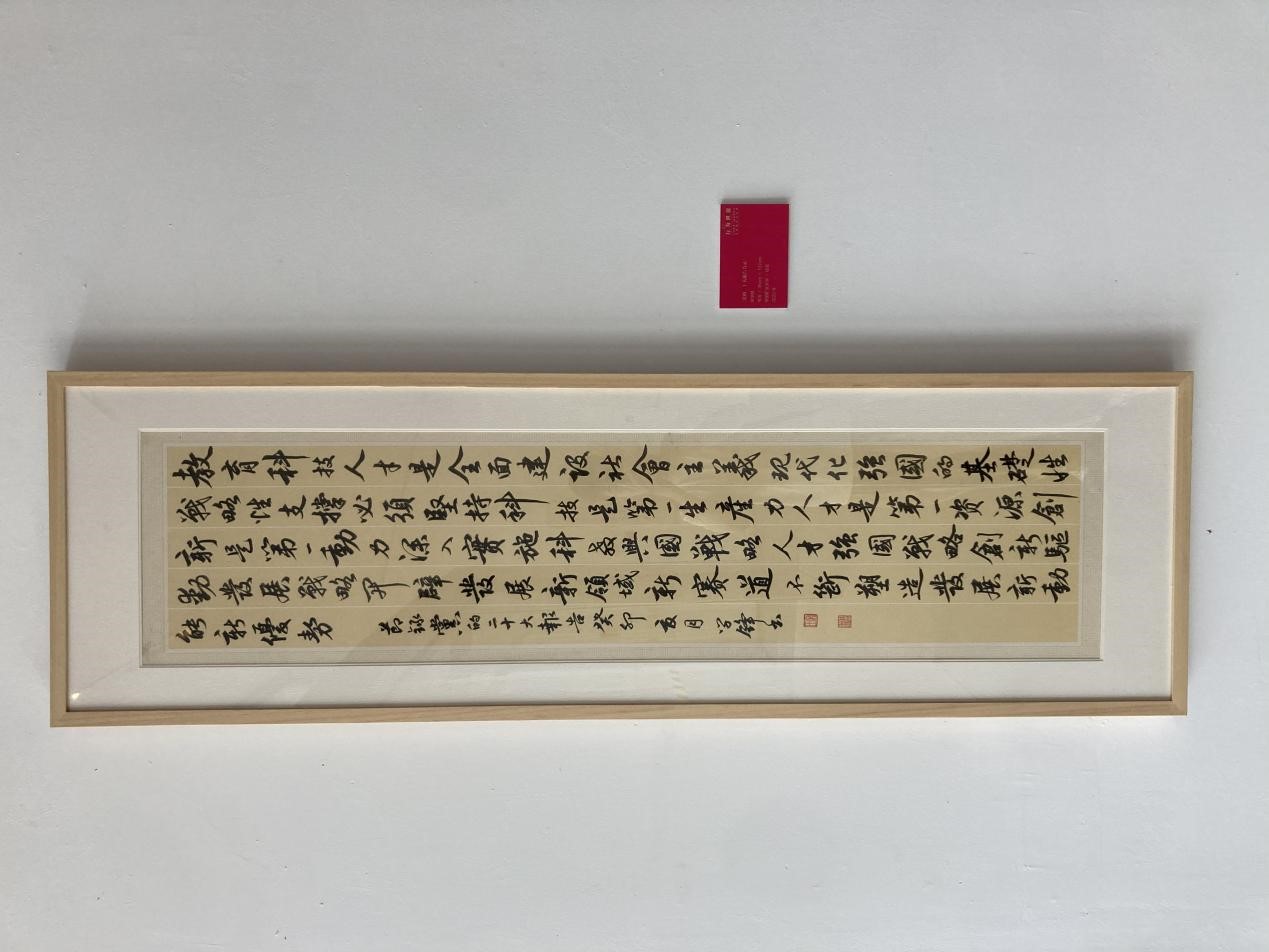 教育科技人才是全面建設社會主義现代化強國的基礎性
戰略性支撐必須堅持科技是第一生產力人才是第一资源創
新是第一動力深入實施科教興國戰略人才強國戰略創新驅
動發展戰略開辟發展新領域新賽道不斷塑造發展新動
能新優勢 節錄黨的二十大報告癸卯夏月